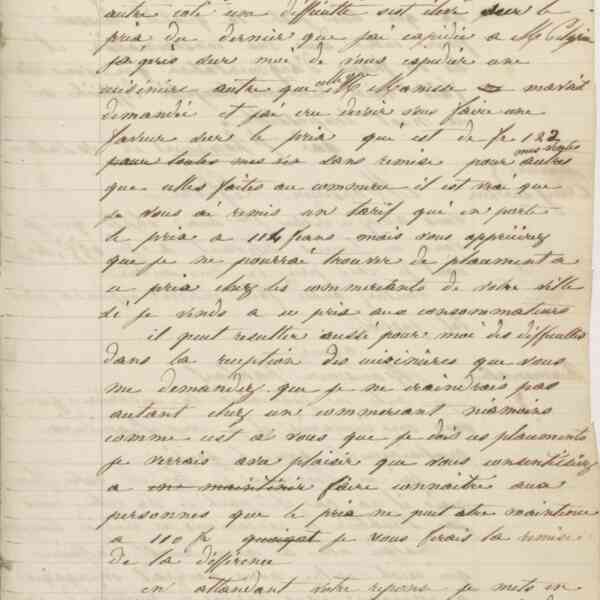 autre coté une difficulté s'est élevé sur le
prix du dernier que j'ai expédié a M
j'ai pris sur moi de vous expédier une
cuisinière autre que celle que M mavait
demandé et j'ai cru devoir vous faire une
faveur sur le prix qui est de fr 122
pour toutes mes sans remise pour mes ventes autres
que celles faites au commerce il est vrai que
je vous ai remis un tarif qui en porte
le prix a 104 frans mais vous apprécirez
que je ne pourrai trouver de placement a
ce prix chez les commercants de votre ville
si je vends a ce prix aux consommateurs
il peut resulter aussi pour moi des difficultés
dans la reception des cuisinières que vous
me demandez que je ne craindrais pas
autant chez un commercant néamoins
comme cest a vous que je dois ces placements
je verrais avec plaisir que vous consentissiez
a en maintenir faire connaitre aux
personnes que le prix ne peut etre maintenue
a 100 fr quoique je vous ferais la remise
de la différence
en attandant votre reponse je mets en